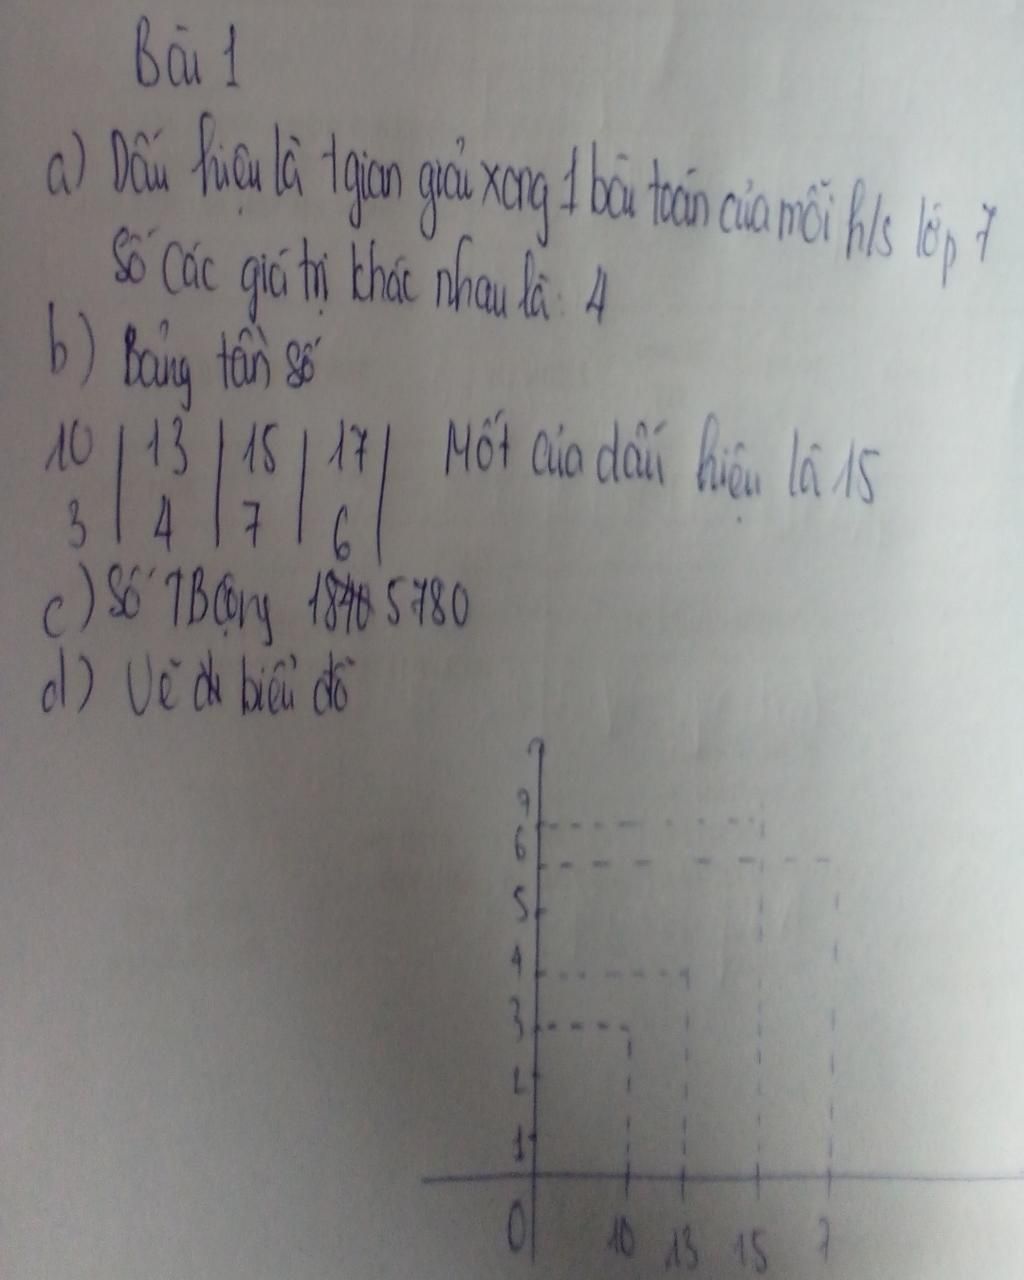 Bài 1
a) Dấu hiệu là tgian giải xong 1 bài toán của mỗi h/s lớp 7
Số các giá trị khác nhau là: 4
b) Bảng tần số
10 | 13 | 15 | 17 | Mốt của dấu hiệu là 15
3 | 4 | 7 | 6 |
c) Số TBCộng 5780
d) Vẽ biểu đồ
7
6
5
4
3
2
1
0 10 13 15 7